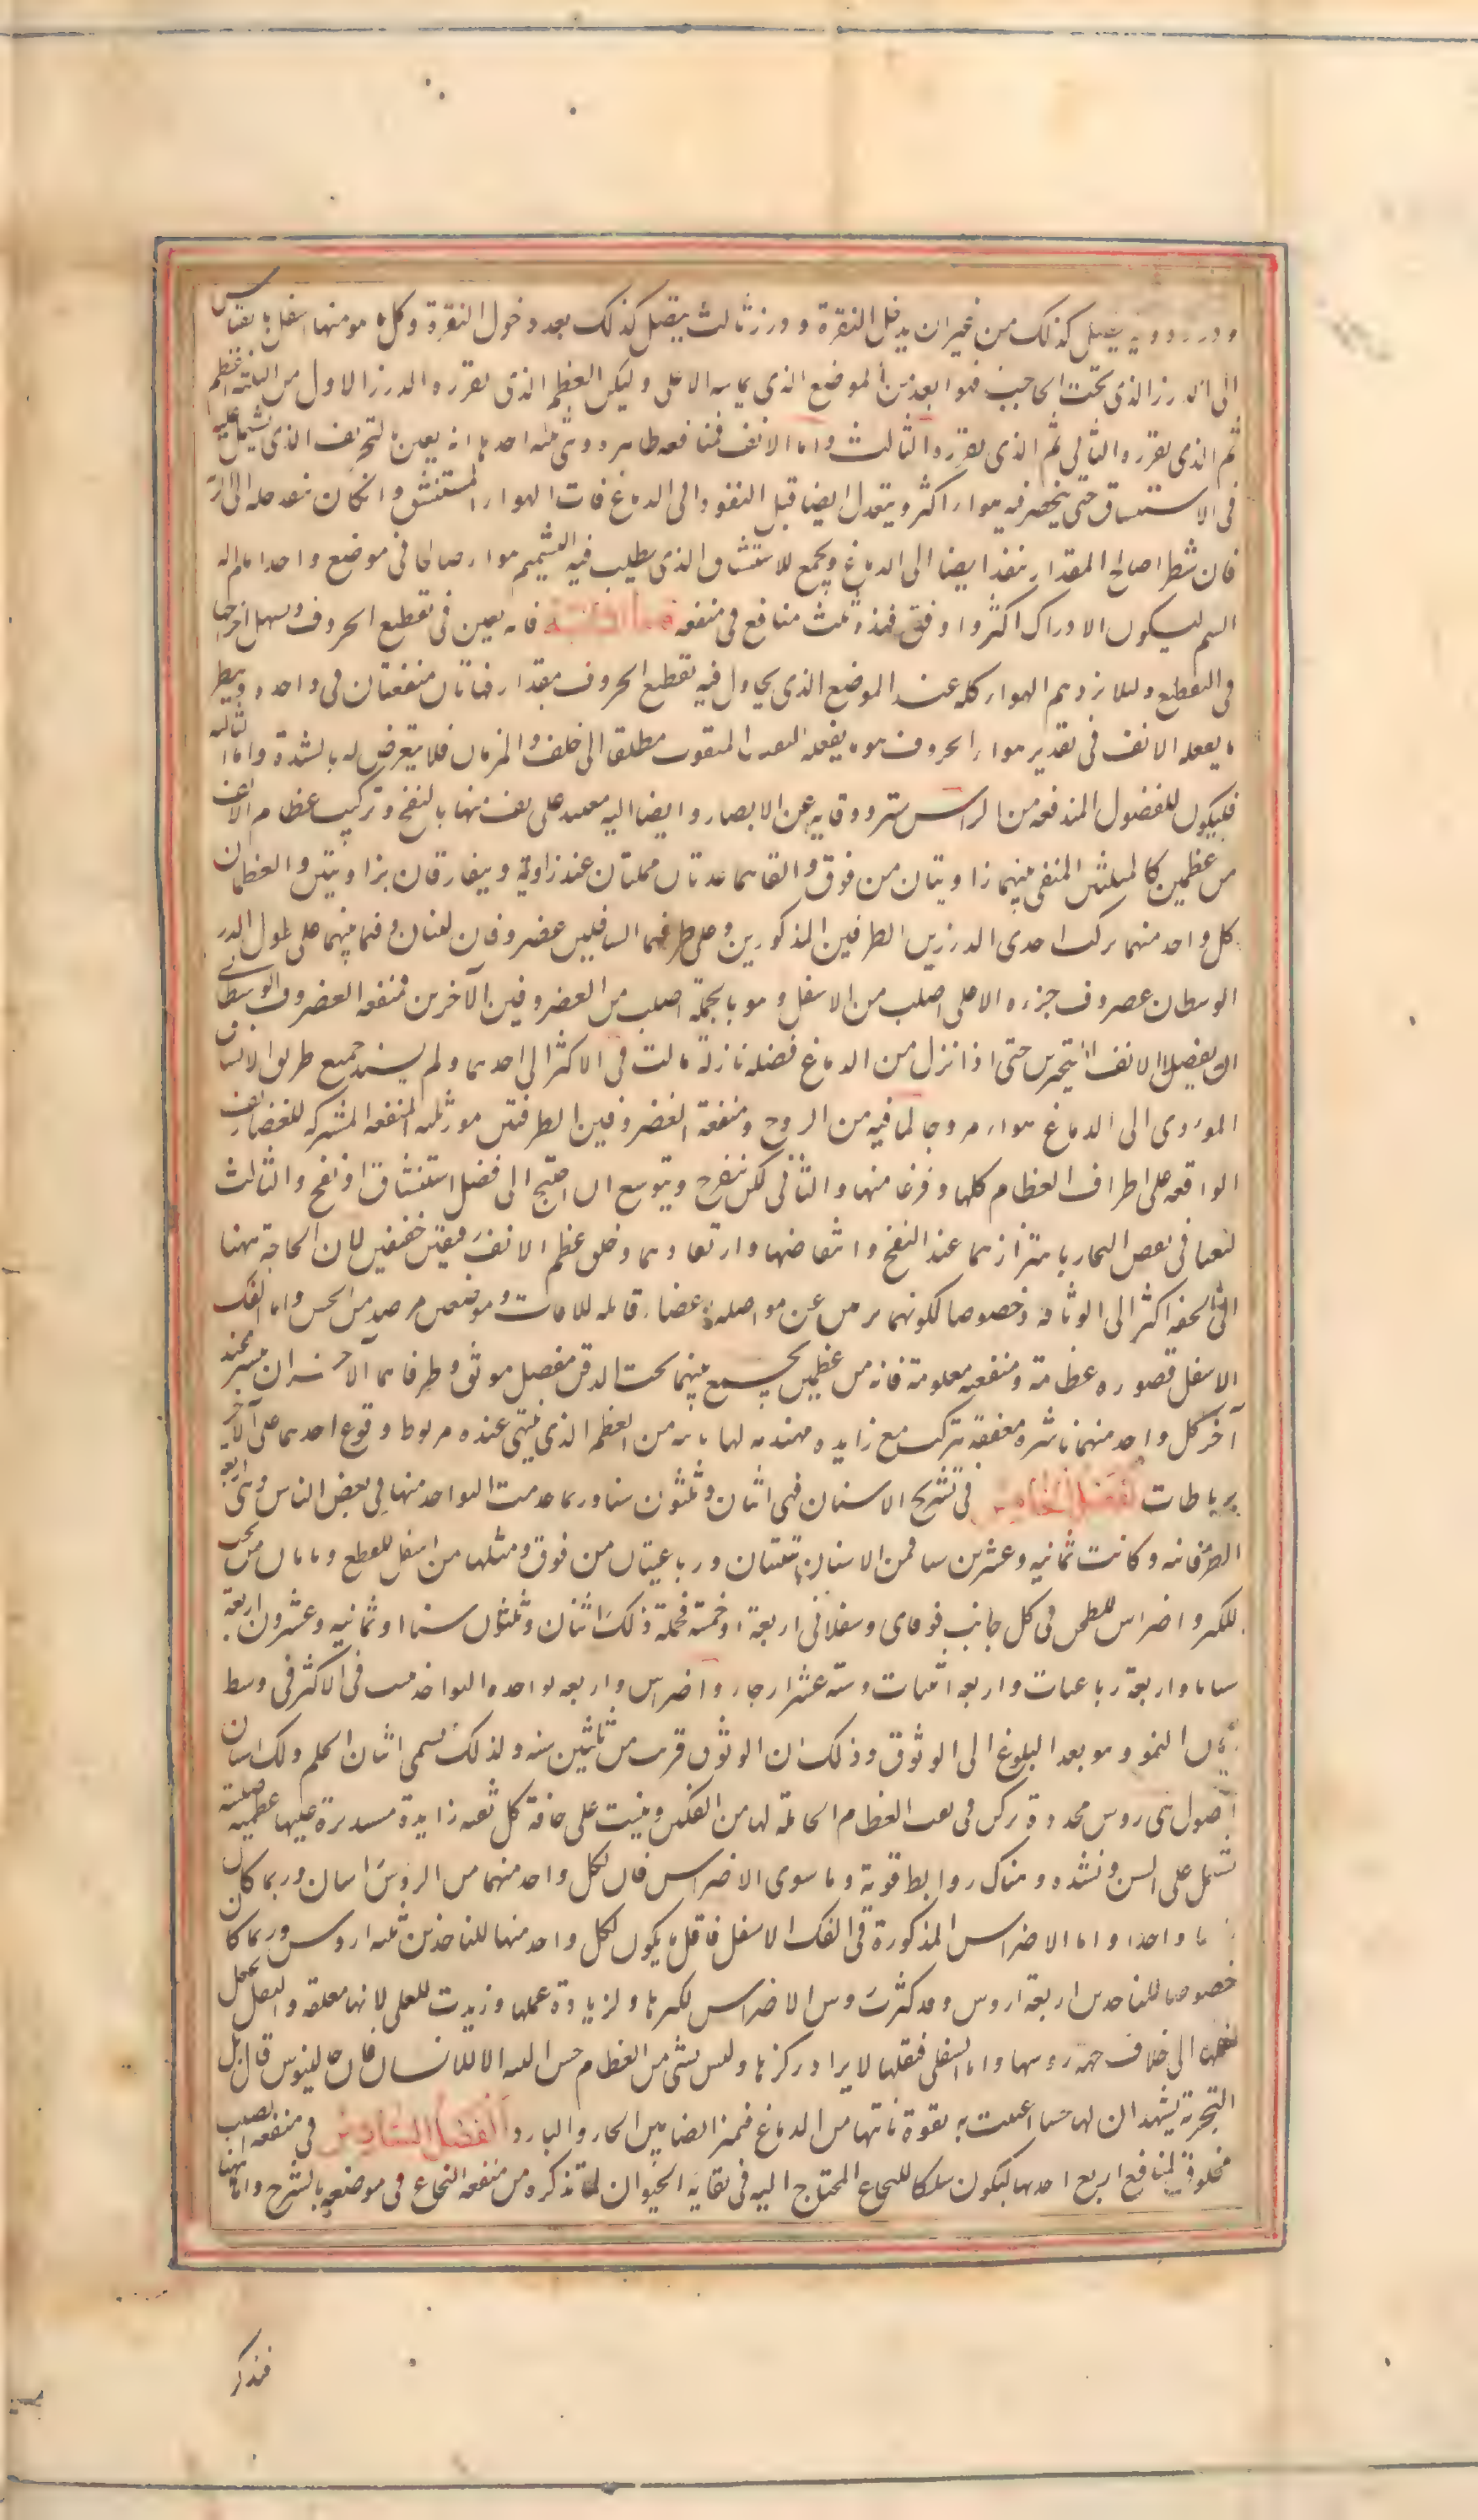 ودرز دونه يتصل كذلك من غير ان يدخل النقرة ودرز ثالث يتصل كذلك بعد دخول النقرة وكل ما هو منها اسفل بالقياس
الى الدرز الذى تحت الحاجب فهو ابعد من الموضع الذى يماسه الاعلى وليكن العظم الذى يفرزه الدرز الاول من الثلثة اعظم
ثم الذى يفرزه الثانى ثم الذى يفرزه الثالث واما الانف فمنافعه ظاهرة وهى ثلثة احدها انه يعين بالتجويف الذى يشتمل عليه
فى الاستنشاق حتى ينحصر فيه هواء اكثر ويتعدل ايضا قبل النفوذ الى الدماغ فان الهواء المستنشق وان كان ينفذ جملة الى الرية
فان شطرا صالح المقدار ينفذ ايضا الى الدماغ ويجمع للاستنشاق الذى يطلب فيه التشمم هواء صالحا فى موضع واحد امام الة
الشم ليكون الادراك اكثر واوفق فهذه ثلث منافع فى منفعة واما الثانية فانه يعين فى تقطيع الحروف وتسهيل اخراجها
فى التقطيع ولئلا يزدحم الهواء كله عند الموضع الذى يحاول فيه تقطيع الحروف بمقدار فهاتان منفعتان فى واحدة ونظير
ما يفعله الانف فى تقدير هواء الحروف هو ما يفعله الثقب المثقوب مطلقا الى خلف المزمار فلا يتعرض له بالشدة واما الثالثة
فليكون للفضول المندفعة من الراس ستر ووقاية عن الابصار وايضا الة معينة على نفضها بالنفخ وتركيب عظام الانف
من عظمين كالمثلثين تلتقى منهما زاويتان من فوق والقاعدتان تتماسان عند زاوية ويتفارقان بزاويتين والعظمان
كل واحد منهما يركب احدى الدرزين الطرفين المذكورين وعلى طرفيهما السافلين غضروفان لينان وفيما بينهما على طول الدرز
الوسطانى غضروف جزءه الاعلى اصلب من الاسفل وهو بالجملة اصلب من الغضروفين الآخرين فمنفعة الغضروف الوسطانى
ان يفصل الانف الى منخرين حتى اذا نزل من الدماغ فضلة نازلة مالت فى الاكثر الى احدهما ولم يسد جميع طريق الاستنشاق
المؤدى الى الدماغ هواء مروحا لما فيه من الروح ومنفعة الغضروفين الطرفيين امور ثلثة المنفعة المشتركة للغضاريف
الواقعة على اطراف العظام كلها وفرغنا منها والثانى لكى ينفرج ويتوسع ان احتيج الى فضل استنشاق او نفخ والثالث
ليعينا فى نفض البخار باهتزازهما عند النفخ وانتفاضهما وارتعادهما وخلق عظم الانف رقيقين خفيفين لان الحاجة ههنا
الى الخفة اكثر الى الوثاقة وخصوصا لكونهما بريين عن مواصلة اعضاء قابلة للافات وموضعين بمرصد من الحس واما الفك
الاسفل فصورة عظامه ومنفعته معلومة فانه من عظمين يجمع بينهما تحت الذقن مفصل موثق وطرفاهما الآخران ينتشر عند
آخر كل واحد منهما ناشزة معقفة تتركب مع زايدة مهندمة لها ناتية من العظم الذى ينتهى عنده مربوط وقوع احدهما على الآخر
برباطات الفصل الخامس فى تشريح الاسنان فهى اثنان وثلثون سنا وربما عدمت النواجذ منها فى بعض الناس وهى الاربعة
الطرفانية وكانت ثمانية وعشرين سنا فمن الاسنان ثنيتان ورباعيتان من فوق ومثلها من اسفل للقطع ونابان من تحت
للكسر واضراس للطحن فى كل جانب فوقانى وسفلانى اربعة او خمسة فجملة ذلك اثنان وثلثون سنا او ثمانية وعشرون اربعة
ثنايا واربعة رباعيات واربعة انياب وستة عشر ارحاء واضراس واربعة نواجذ والنواجذ تنبت فى الاكثر فى وسط
زمان النمو وهو بعد البلوغ الى الوقوف وذلك ان الوقوف قريب من ثلثين سنة ولذلك تسمى اسنان الحلم ولك اسنان
اصول هى روس محددة تركن فى ثقب العظام الحاملة لها من الفكين وينبت على حافة كل ثقبة زايدة مستديرة عليها عظمية
تشتمل على السن وتشده وهناك روابط قوية وما سوى الاضراس فان لكل واحد منهما من الروس راسان وربما كان
راسا واحدا واما الاضراس المذكورة فى الفك الاسفل فاقل ما يكون لكل واحد منها للناجذين ثلثة اروس وربما كان
خصوصا للناجذين اربعة اروس وقد كثرت روس الاضراس لكبرها ولزيادة عملها وزيدت للعلى لانها معلقة والثقل يجعل
ميلها الى خلاف جهة روسها واما السفلى فثقلها لا يضاد ركزها وليس لشى من العظام حس البتة الا للاسنان فان جالينوس قال بل
التجربة تشهد ان لها حسا اعينت به بقوة تاتيها من الدماغ فتميز ايضا بين الحار والبارد الفصل السادس فى منفعة الصلب
مخلوق لمنافع اربع احدها ليكون مسلكا للنخاع المحتاج اليه فى بقاية الحيوان لما تذكره من منفعة النخاع فى موضعه بالشرح واما ههنا
فنذكر